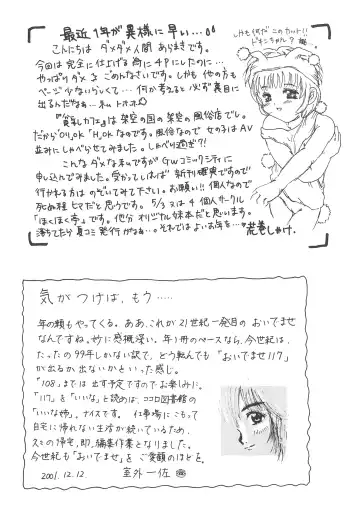 最近1年が異様に早い…。
しかも何だこのカット!!
こんにちは ダメダメ人間 あらまきです。
今回は完全に仕上げる前に4Pにしたのに…
やっぱりダメ ごめんなさいです。しかも他の方も
ページ少ないらしくって… 何か考えると必ず裏目に
出るんだなぁ…私 トホホ
『貧乳カフェ』は架空の国の架空の風俗店でし。
だから OKなのです。風俗なので 女の子はAV
並みにしゃべらせてみました。しゃべり過ぎ?!
こんなダメな私ですが GWコミックシティに
申し込んでみました。受かってしまえば 新刊確実ですので
行かれる方は のぞいてみて下さい。お願い!! 個人なので
死ぬ程ヒマだと思うです。5/3 又は4 個人サークル
「ほくほく亭」です。他分 オリジナル妹本だと思います。
落ちてたら夏コミ発行かなぁ…。それではよいお年を…
荒巻しゃけ.
気がつけば、もう……
年の瀬もやってくる。ああ、これが21世紀一発目の おいでませ
なんですね。妙に感慨深い。年1冊のペースなら、今世紀は、
たったの99年しかない訳で、どう転んでも「おいでませ117」
が出るか出ないかといった感じ。
「108」までは 出す予定ですのでお楽しみに。
「117」を「いいな」と読めば、ココロ図書館の
「いいな姉」。ナイスです。 仕事場にこもって
自宅に帰れない生活が続いているため、
久々の帰宅、即、編集作業となりました。
今世紀も「おいでませ」を ご贔屓のほどを。
2001.12.12. 室外一佐